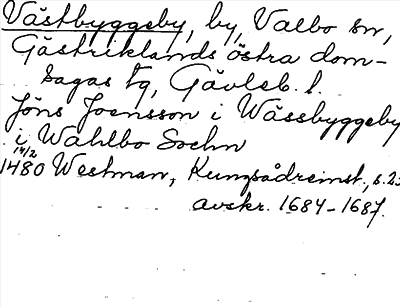 Västbyggeby, by, Valbo sn,
Gästriklands östra dom-
sagas tg, Gävleb. l.
Jöns Joensson i Wässbyggeby
i Wahlbo Sochn
14/2
1480 Westman, Kungsådreinst., s.
avskr. 1684-1687.